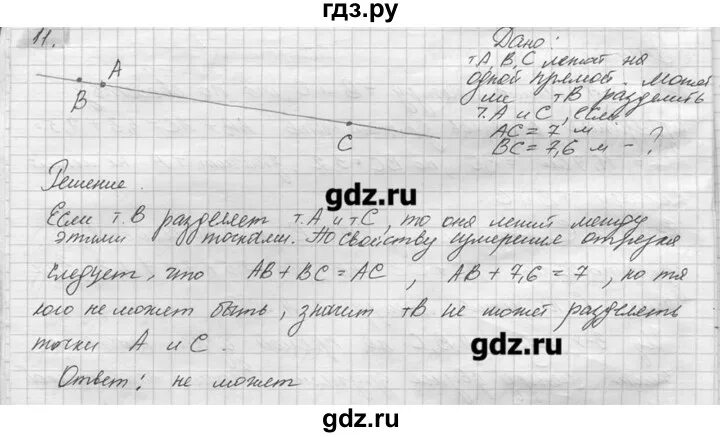 гдз.ру
11.
Дано:
т A, B, C лежат на
одной прямой. Может
ли т B разделить
т. A и C, если
AC = 7 м
BC = 7,6 м - ?
B A
C
Решение.
gdz.ru
Если т. B разделяет т. A и т C, то она лежит между
этими точками. По свойству измерения отрезка
следует, что AB + BC = AC, AB + 7,6 = 7, но та
кого не может быть, значит т B не может разделять
точки A и C.
gdz.ru
Ответ: не может
gdz.ru